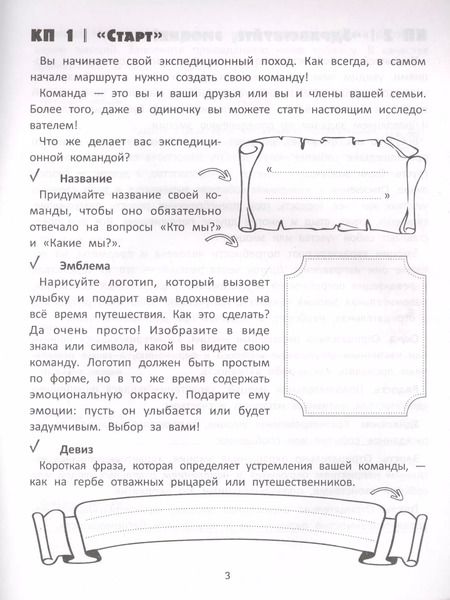 КП 1 | «Старт»
Вы начинаете свой экспедиционный поход. Как всегда, в самом
начале маршрута нужно создать свою команду!
Команда — это вы и ваши друзья или вы и члены вашей семьи.
Более того, даже в одиночку вы можете стать настоящим исследо-
вателем!
Что же делает вас экспедици-
онной командой?
√ Название
Придумайте название своей ко-
манды, чтобы оно обязательно
отвечало на вопросы «Кто мы?»
и «Какие мы?».
«
»
√ Эмблема
Нарисуйте логотип, который вызовет
улыбку и подарит вам вдохновение на
всё время путешествия. Как это сделать?
Да очень просто! Изобразите в виде
знака или символа, какой вы видите свою
команду. Логотип должен быть простым
по форме, но в то же время содержать
эмоциональную окраску. Подарите ему
эмоции: пусть он улыбается или будет
задумчивым. Выбор за вами!
√ Девиз
Короткая фраза, которая определяет устремления вашей команды, —
как на гербе отважных рыцарей или путешественников.
3